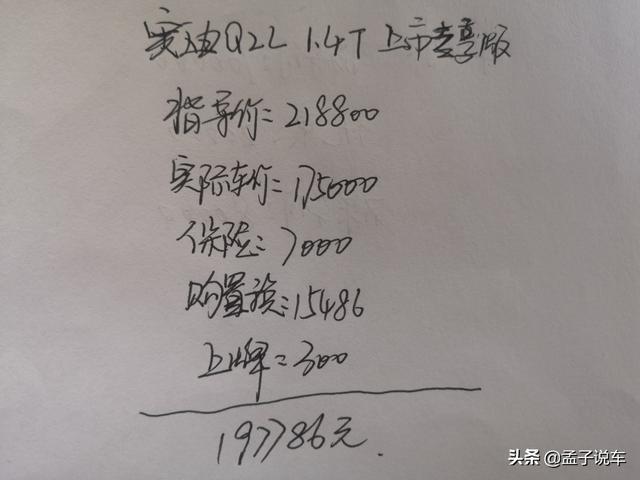 奥迪Q2L 1.4T 上市专享版
指导价=218800
实际车价=175000
保险=7000
购置税=15486
上牌=300
197786元.
头条 @孟子说车